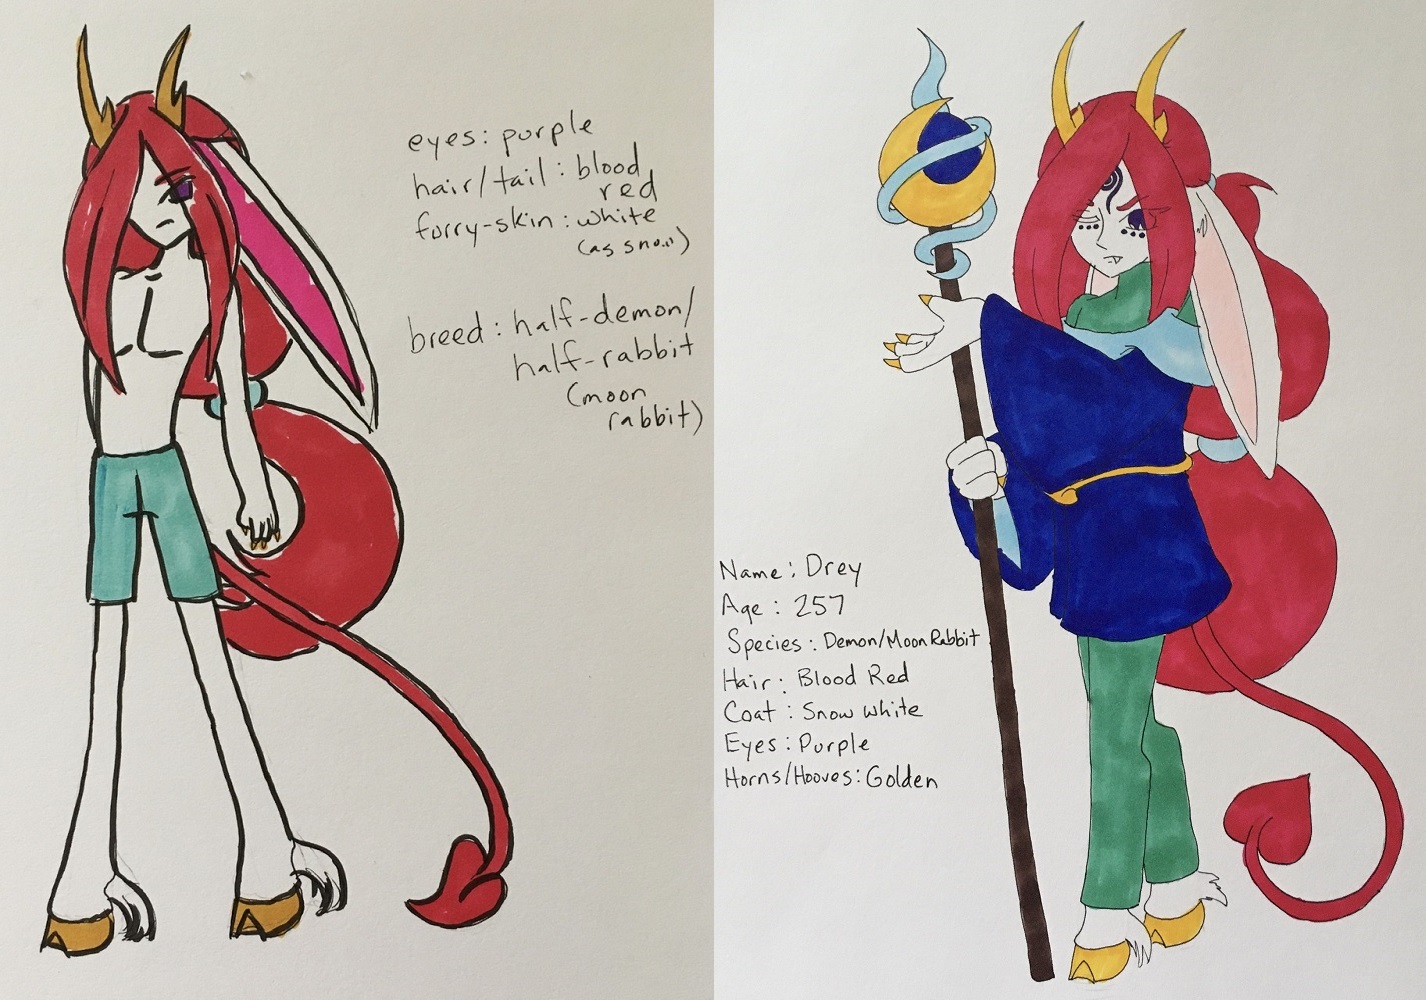 eyes: purple
hair/tail: blood
red
furry-skin: white
(as snow)
breed: half-demon/
half-rabbit
(moon
rabbit)
Name: Drey
Age: 257
Species: Demon/Moon Rabbit
Hair: Blood Red
Coat: Snow White
Eyes: Purple
Horns/Hooves: Golden